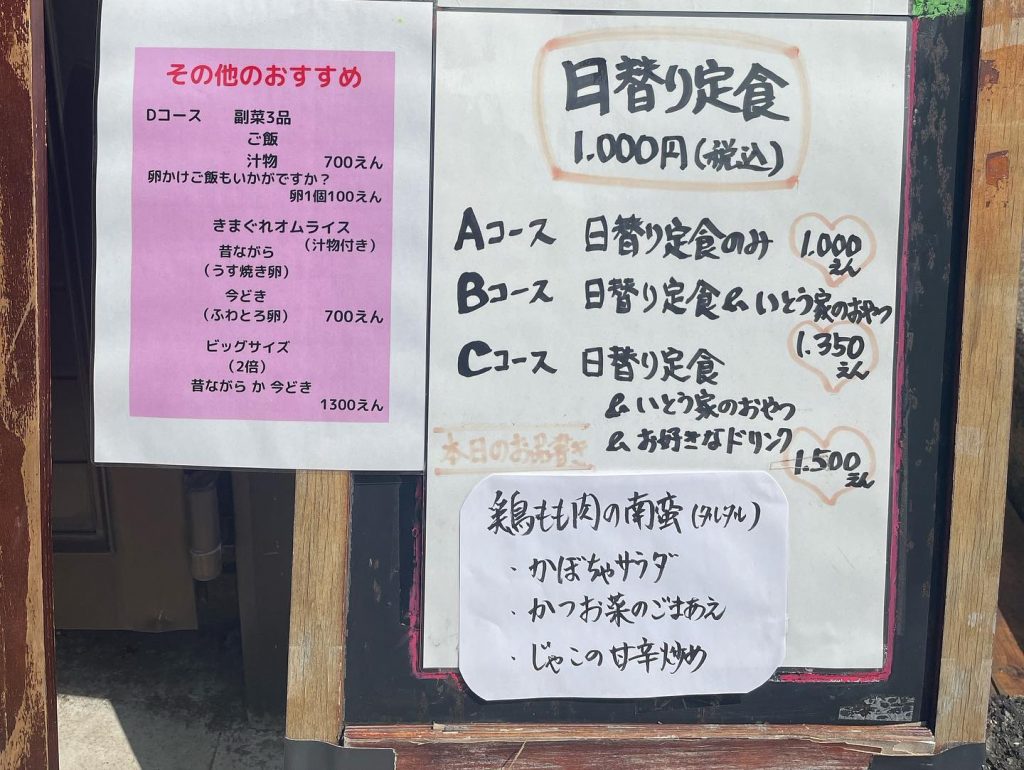 その他のおすすめ
Dコース 副菜3品
ご飯
汁物 700えん
卵かけご飯もいかがですか？
卵1個100えん
きまぐれオムライス
（汁物付き）
昔ながら
（うす焼き卵）
今どき
（ふわとろ卵） 700えん
ビッグサイズ
（2倍）
昔ながら か 今どき
1300えん
日替り定食
1.000円(税込)
Aコース 日替り定食のみ 1.000えん
Bコース 日替り定食&いとう家のおやつ
1.350えん
Cコース 日替り定食
&いとう家のおやつ
&お好きなドリンク
1.500えん
本日のお品書き
鶏もも肉の南蛮(タルタル)
・かぼちゃサラダ
・かつお菜のごまあえ
・じゃこの甘辛炒め